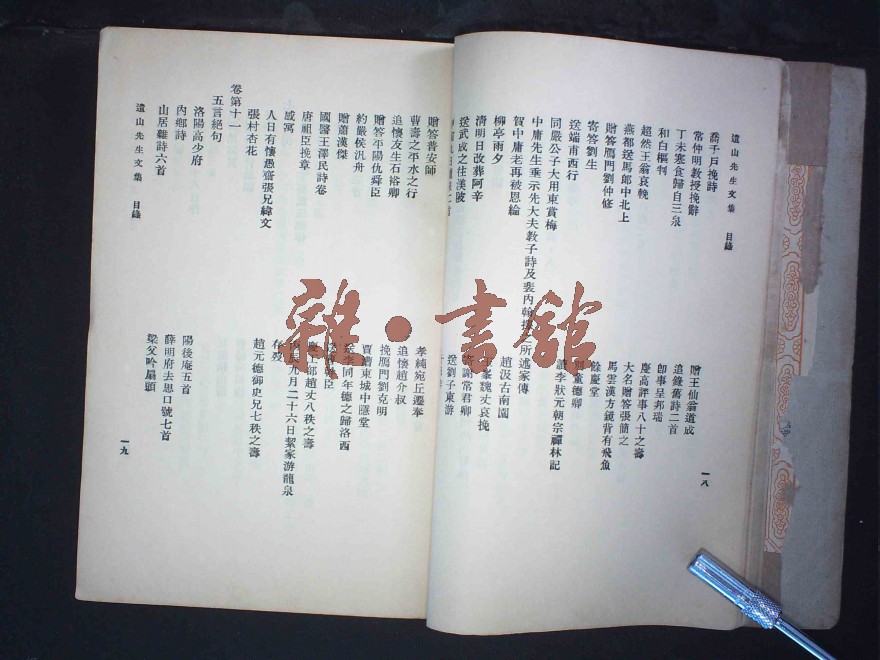 遺山先生文集 目錄
一八
喬千戶挽詩
常仲明教授挽辭
丁未寒食歸自三泉
和白樞判
超然王翁哀輓
燕都送馬郎中北上
贈答鴈門劉仲修
寄答劉生
送端甫西行
同嚴公子大用東賞梅
中庸先生垂示先大夫教子詩及裴內翰
之所述家傳
賀中庸老再被恩綸
柳亭雨夕
清明日改葬阿辛
送武誠之往漢陂
贈王仙翁道成
追錄舊詩二首
即事呈邦瑞
慶高評事八十之壽
大名贈答張簡之
馬雲漢方鏡背有飛魚
餘慶堂
童德卿
李狀元朝宗禪林記
趙汲古南園
魏丈哀挽
寄謝常君卿
送劉子東游
贈答普安師
曹壽之平水之行
追懷友生石裕卿
贈答平陽仇舜臣
約嚴侯汎舟
贈蕭漢傑
國醫王澤民詩卷
唐祖臣挽章
感寓
人日有懷愚齋張兄緯文
張村杏花
孝純宛丘遷奉
追懷趙介叔
挽鴈門劉克明
賈漕東城中隱堂
送李同年德之歸洛西
臣
慶王部趙丈八秩之壽
辰九月二十六日絜家游龍泉
存歿
趙元德御史兄七秩之壽
卷第十一
五言絕句
洛陽高少府
陽後庵五首
內鄉詩
薛明府去思口號七首
山居雜詩六首
梁父吟扇頭
遺山先生文集 目錄
一九
雜·書館